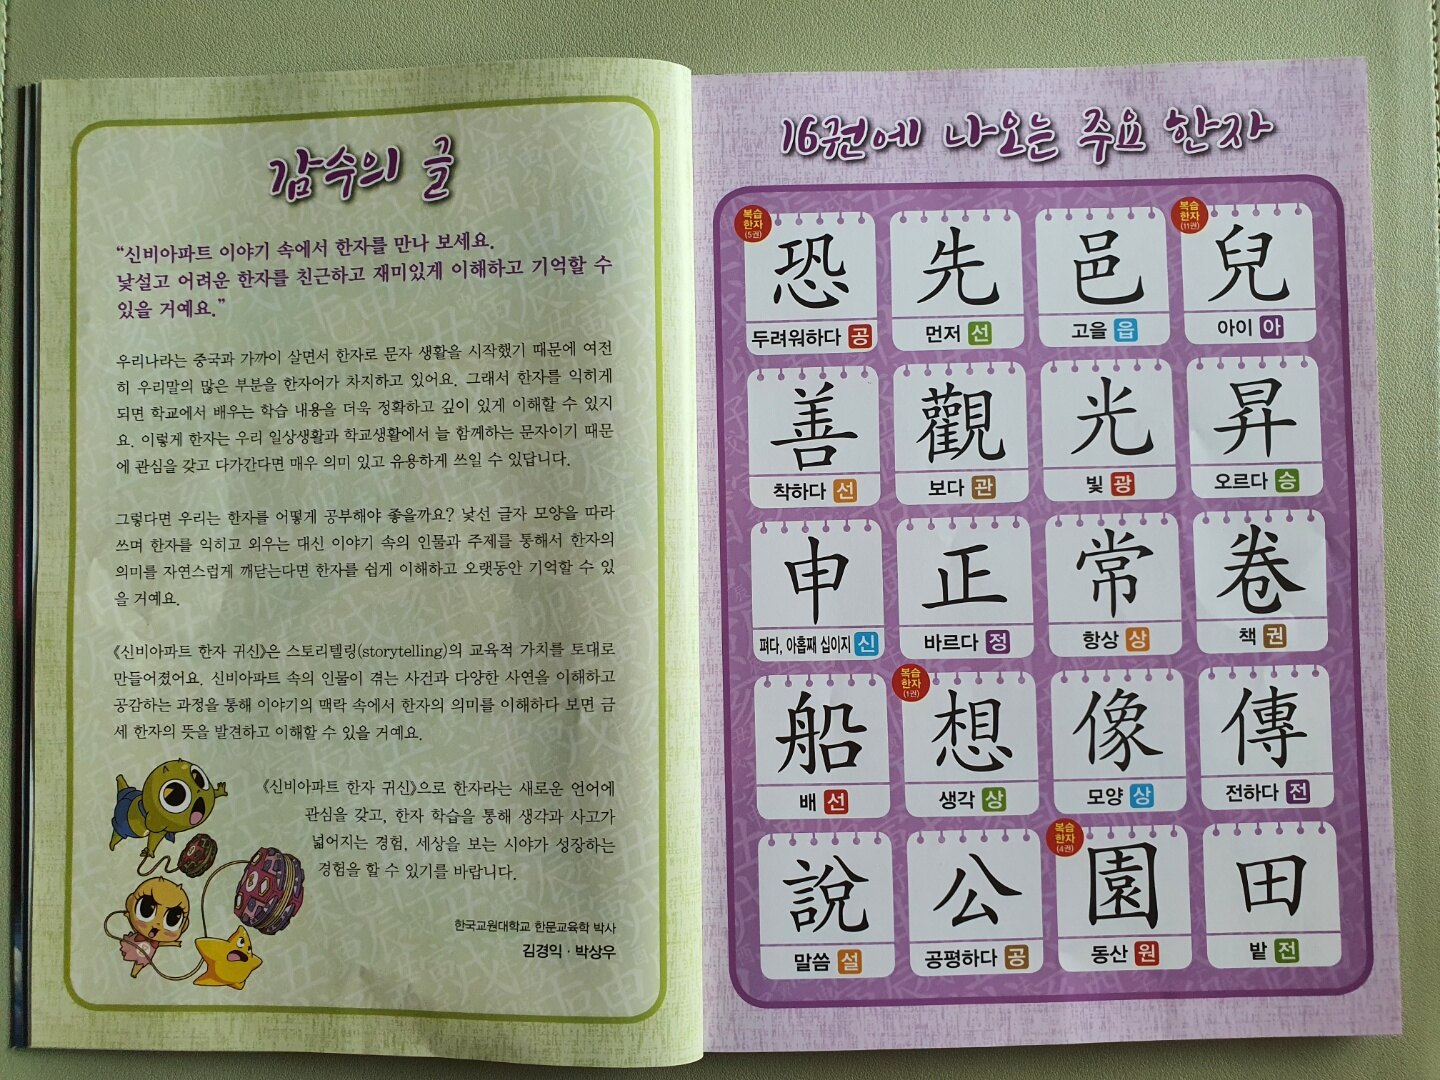 감수의 글
“신비아파트 이야기 속에서 한자를 만나 보세요.
낯설고 어려운 한자를 친근하고 재미있게 이해하고 기억할 수
있을 거예요.”
우리나라는 중국과 가까이 살면서 한자로 문자 생활을 시작했기 때문에 여전
히 우리말의 많은 부분을 한자어가 차지하고 있어요. 그래서 한자를 익히게
되면 학교에서 배우는 학습 내용을 더욱 정확하고 깊이 있게 이해할 수 있지
요. 이렇게 한자는 우리 일상생활과 학교생활에서 늘 함께하는 문자이기 때문
에 관심을 갖고 다가간다면 매우 의미 있고 유용하게 쓰일 수 있답니다.
그렇다면 우리는 한자를 어떻게 공부해야 좋을까요? 낯선 글자 모양을 따라
쓰며 한자를 익히고 외우는 대신 이야기 속의 인물과 주제를 통해서 한자의
의미를 자연스럽게 깨닫는다면 한자를 쉽게 이해하고 오랫동안 기억할 수 있
을 거예요.
《신비아파트 한자 귀신》은 스토리텔링(storytelling)의 교육적 가치를 토대로
만들어졌어요. 신비아파트 속의 인물이 겪는 사건과 다양한 사연을 이해하고
공감하는 과정을 통해 이야기의 맥락 속에서 한자의 의미를 이해하다 보면 금
세 한자의 뜻을 발견하고 이해할 수 있을 거예요.
《신비아파트 한자 귀신》으로 한자라는 새로운 언어에
관심을 갖고, 한자 학습을 통해 생각과 사고가
넓어지는 경험, 세상을 보는 시야가 성장하는
경험을 할 수 있기를 바랍니다.
한국교원대학교 한문교육학 박사
김경익 · 박상우
16권에 나오는 주요 한자
복습
한자
(5권)
복습
한자
(11권)
恐 先 邑 兒
두려워하다 공 먼저 선 고을 읍 아이 아
善 觀 光 昇
착하다 선 보다 관 빛 광 오르다 승
申 正 常 卷
펴다, 아홉째 십이지 신 바르다 정 항상 상 책 권
복습
한자
(1권)
船 想 像 傳
배 선 생각 상 모양 상 전하다 전
복습
한자
(4권)
說 公 園 田
말씀 설 공평하다 공 동산 원 밭 전